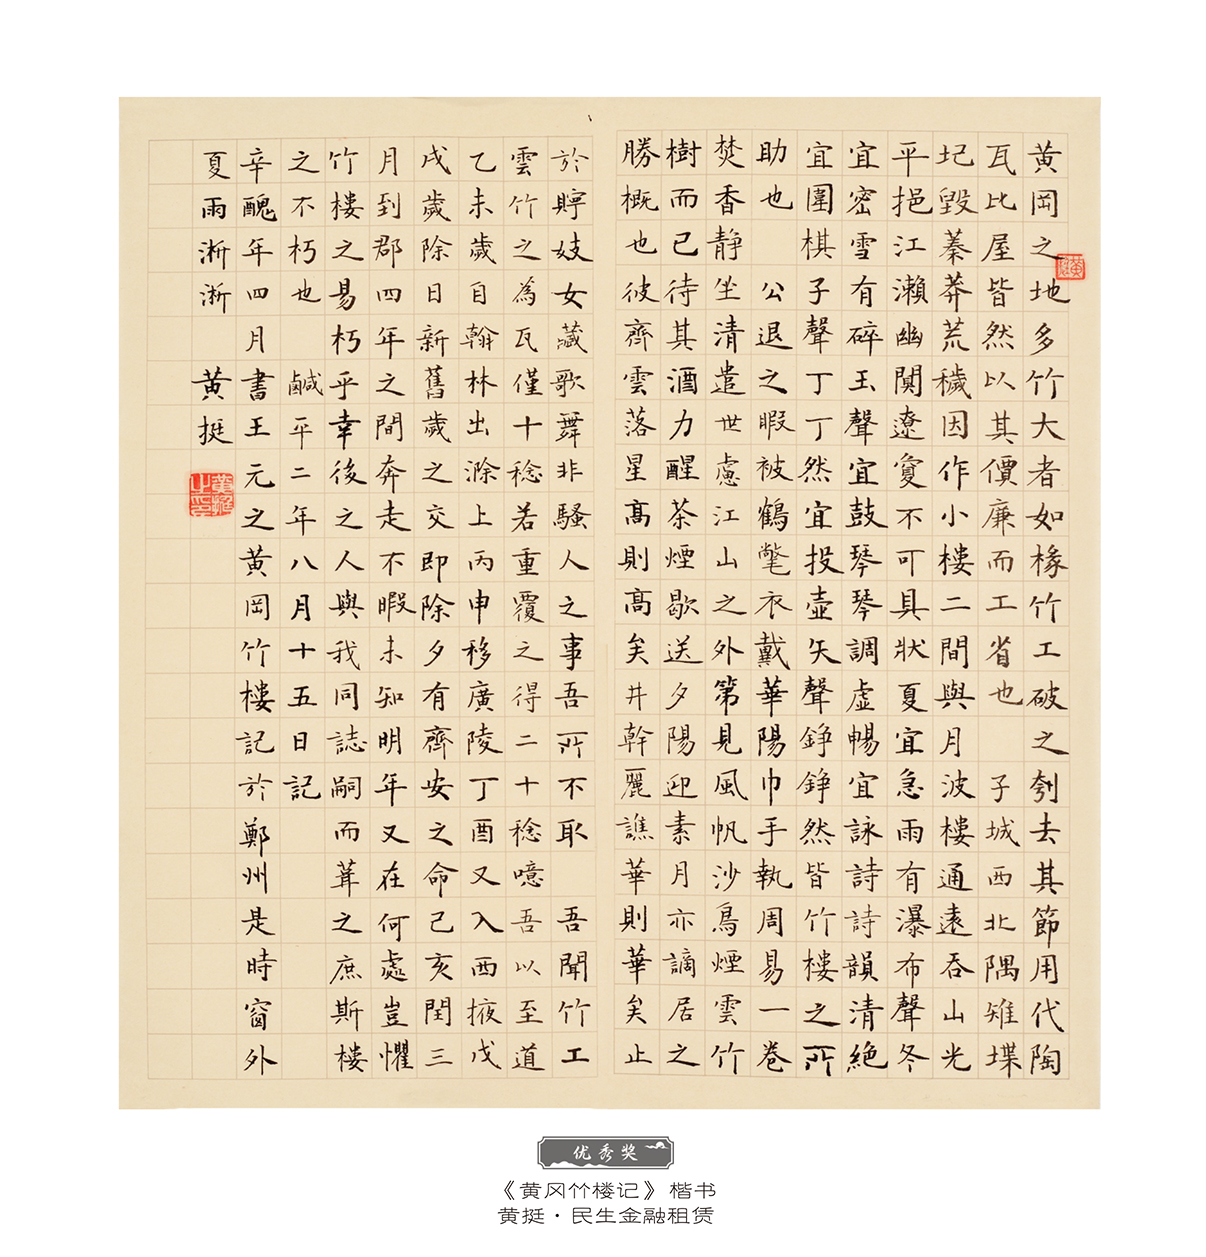 黄岡之地多竹大者如椽竹工破之刳去其節用代陶
瓦比屋皆然以其價廉而工省也 子城西北隅雉堞
圮毀蓁莽荒穢因作小樓二間與月波樓通遠吞山光
平挹江瀨幽闃遼敻不可具狀夏宜急雨有瀑布聲冬
宜密雪有碎玉聲宜鼓琴琴調虛暢宜詠詩詩韻清絕
宜圍棋子聲丁丁然宜投壺矢聲錚錚然皆竹樓之所
助也 公退之暇被鶴氅衣戴華陽巾手執周易一卷
焚香静坐清遣世慮江山之外第見風帆沙鳥煙雲竹
樹而已待其酒力醒茶煙歇送夕陽迎素月亦謫居之
勝概也彼齊雲落星高則高矣井幹麗譙華則華矣止
於貯妓女藏歌舞非騷人之事吾所不取 吾聞竹工
雲竹之為瓦僅十稔若重覆之得二十稔噫吾以至道
乙未歲自翰林出滁上丙申移廣陵丁酉又入西掖戊
戌歲除日新舊歲之交即除夕有齊安之命己亥閏三
月到郡四年之間奔走不暇未知明年又在何處豈懼
竹樓之易朽乎幸後之人與我同誌嗣而葺之庶斯樓
之不朽也 鹹平二年八月十五日記
辛醜年四月書王元之黄岡竹樓記於鄭州是時窗外
夏雨淅淅 黄挺
黄挺之印
优秀奖
《黄冈竹楼记》楷书
黄挺·民生金融租赁